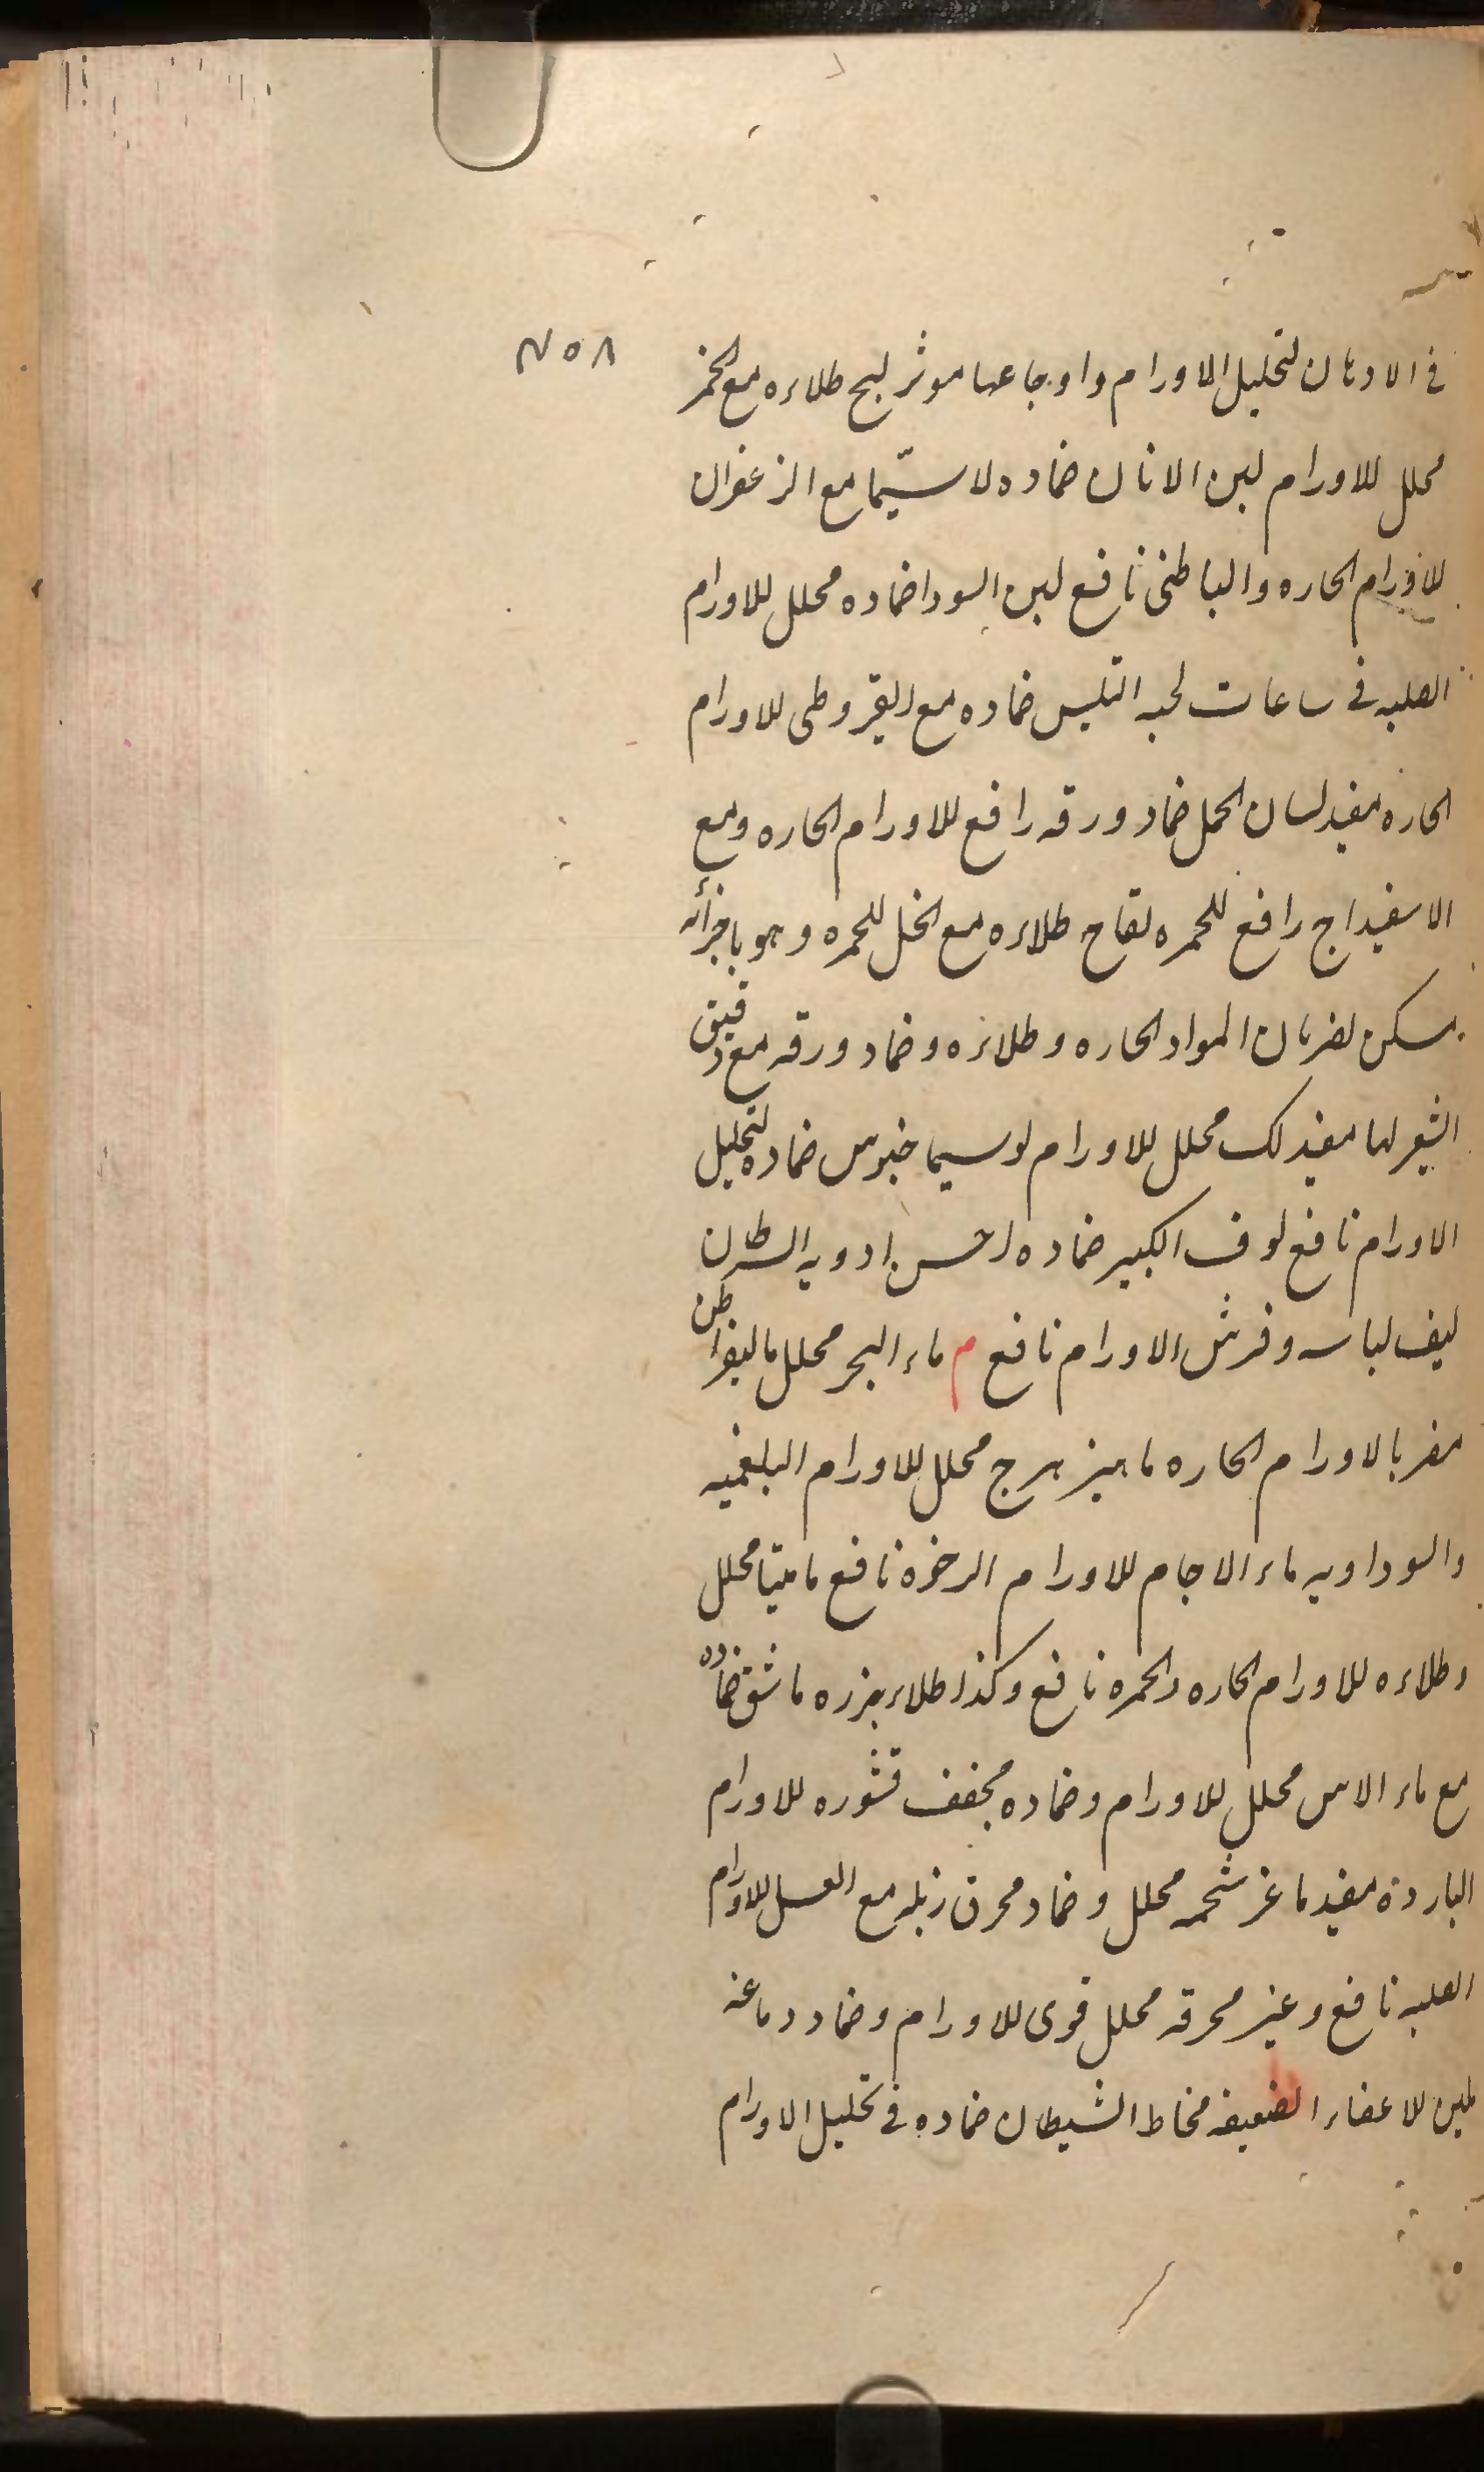 ٢٥٨
في الادهان لتحليل الاورام واوجاعها موثر لبح طلاءه مع الخمر
محلل للاورام لبن الاتان ضماده لاسيّما مع الزعفران
للاورام الحاره والباطنى نافع لبن السودا ضماده محلل للاورام
الصلبه في ساعات لحيه التيس ضماده مع القيروطى للاورام
الحاره مفيد لسان الحمل ضماد ورقه رافع للاورام الحاره ومع
الاسفيداج رافع للحمره لفاح طلاءه مع الخل للحمره وهو باجزائه
مسكن لضربان المواد الحاره وطلائه وضماد ورقه مع دقيق
الشعير لها مفيد لك محلل للاورام لوسيما خيوس ضماده لتحليل
الاورام نافع لوف الكبير ضماده احسن ادويه السرطان
ليف لباسه وفرش الاورام نافع م ماء البحر محلل
مضر بالاورام الحاره ماهيز هرج محلل للاورام البلغميه
والسوداويه ماء الاجام للاورام الرخوة نافع ماميثا محلل
وطلاءه للاورام الحاره والحمره نافع وكذا طلاء بزره ماش ضماده
مع ماء الاس محلل للاورام وضماده مجفف قشوره للاورام
الباردة مفيد ماعز شحمه محلل وضماد محرق زبله مع العسل للاورام
الصلبه نافع وغير محرقه محلل قوى للاورام وضماد دماغه
ملين للاعضاء الضعيفه مخاط الشيطان ضماده في تحليل الاورام